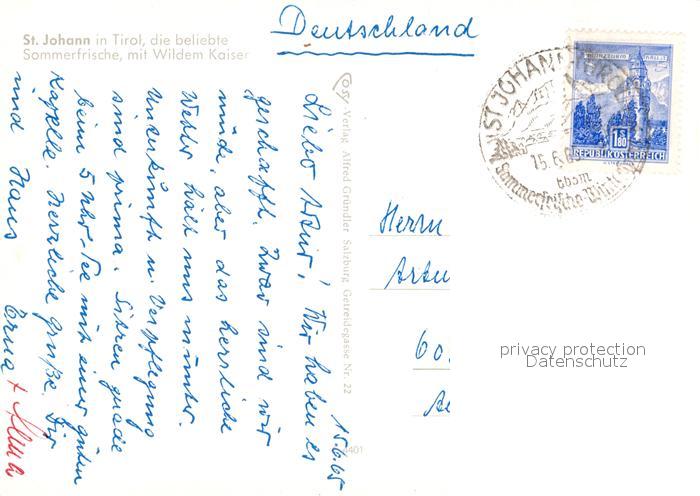 St. Johann in Tirol, die beliebte
Sommerfrische, mit Wildem Kaiser
Deutschland
15.6.65
Lieber Artur! Wir haben es
geschafft. Zwar sind wir
müde, aber das herrliche
Wetter hält uns munter.
Unterkunft u. Verpflegung
sind prima. Sitzen grade
beim 5 Uhr-Tee mit einer guten
Kapelle. Herzliche Grüße. Dir
und Hans Erna + Alma
Verlag Alfred Gründler Salzburg Getreidegasse Nr. 22
MÜNZTURM
1.80
REPUBLIK ÖSTERREICH
ST. JOHANN
15.6.65
Sommerfrische
Herrn
Artu
60.
privacy protection
Datenschutz